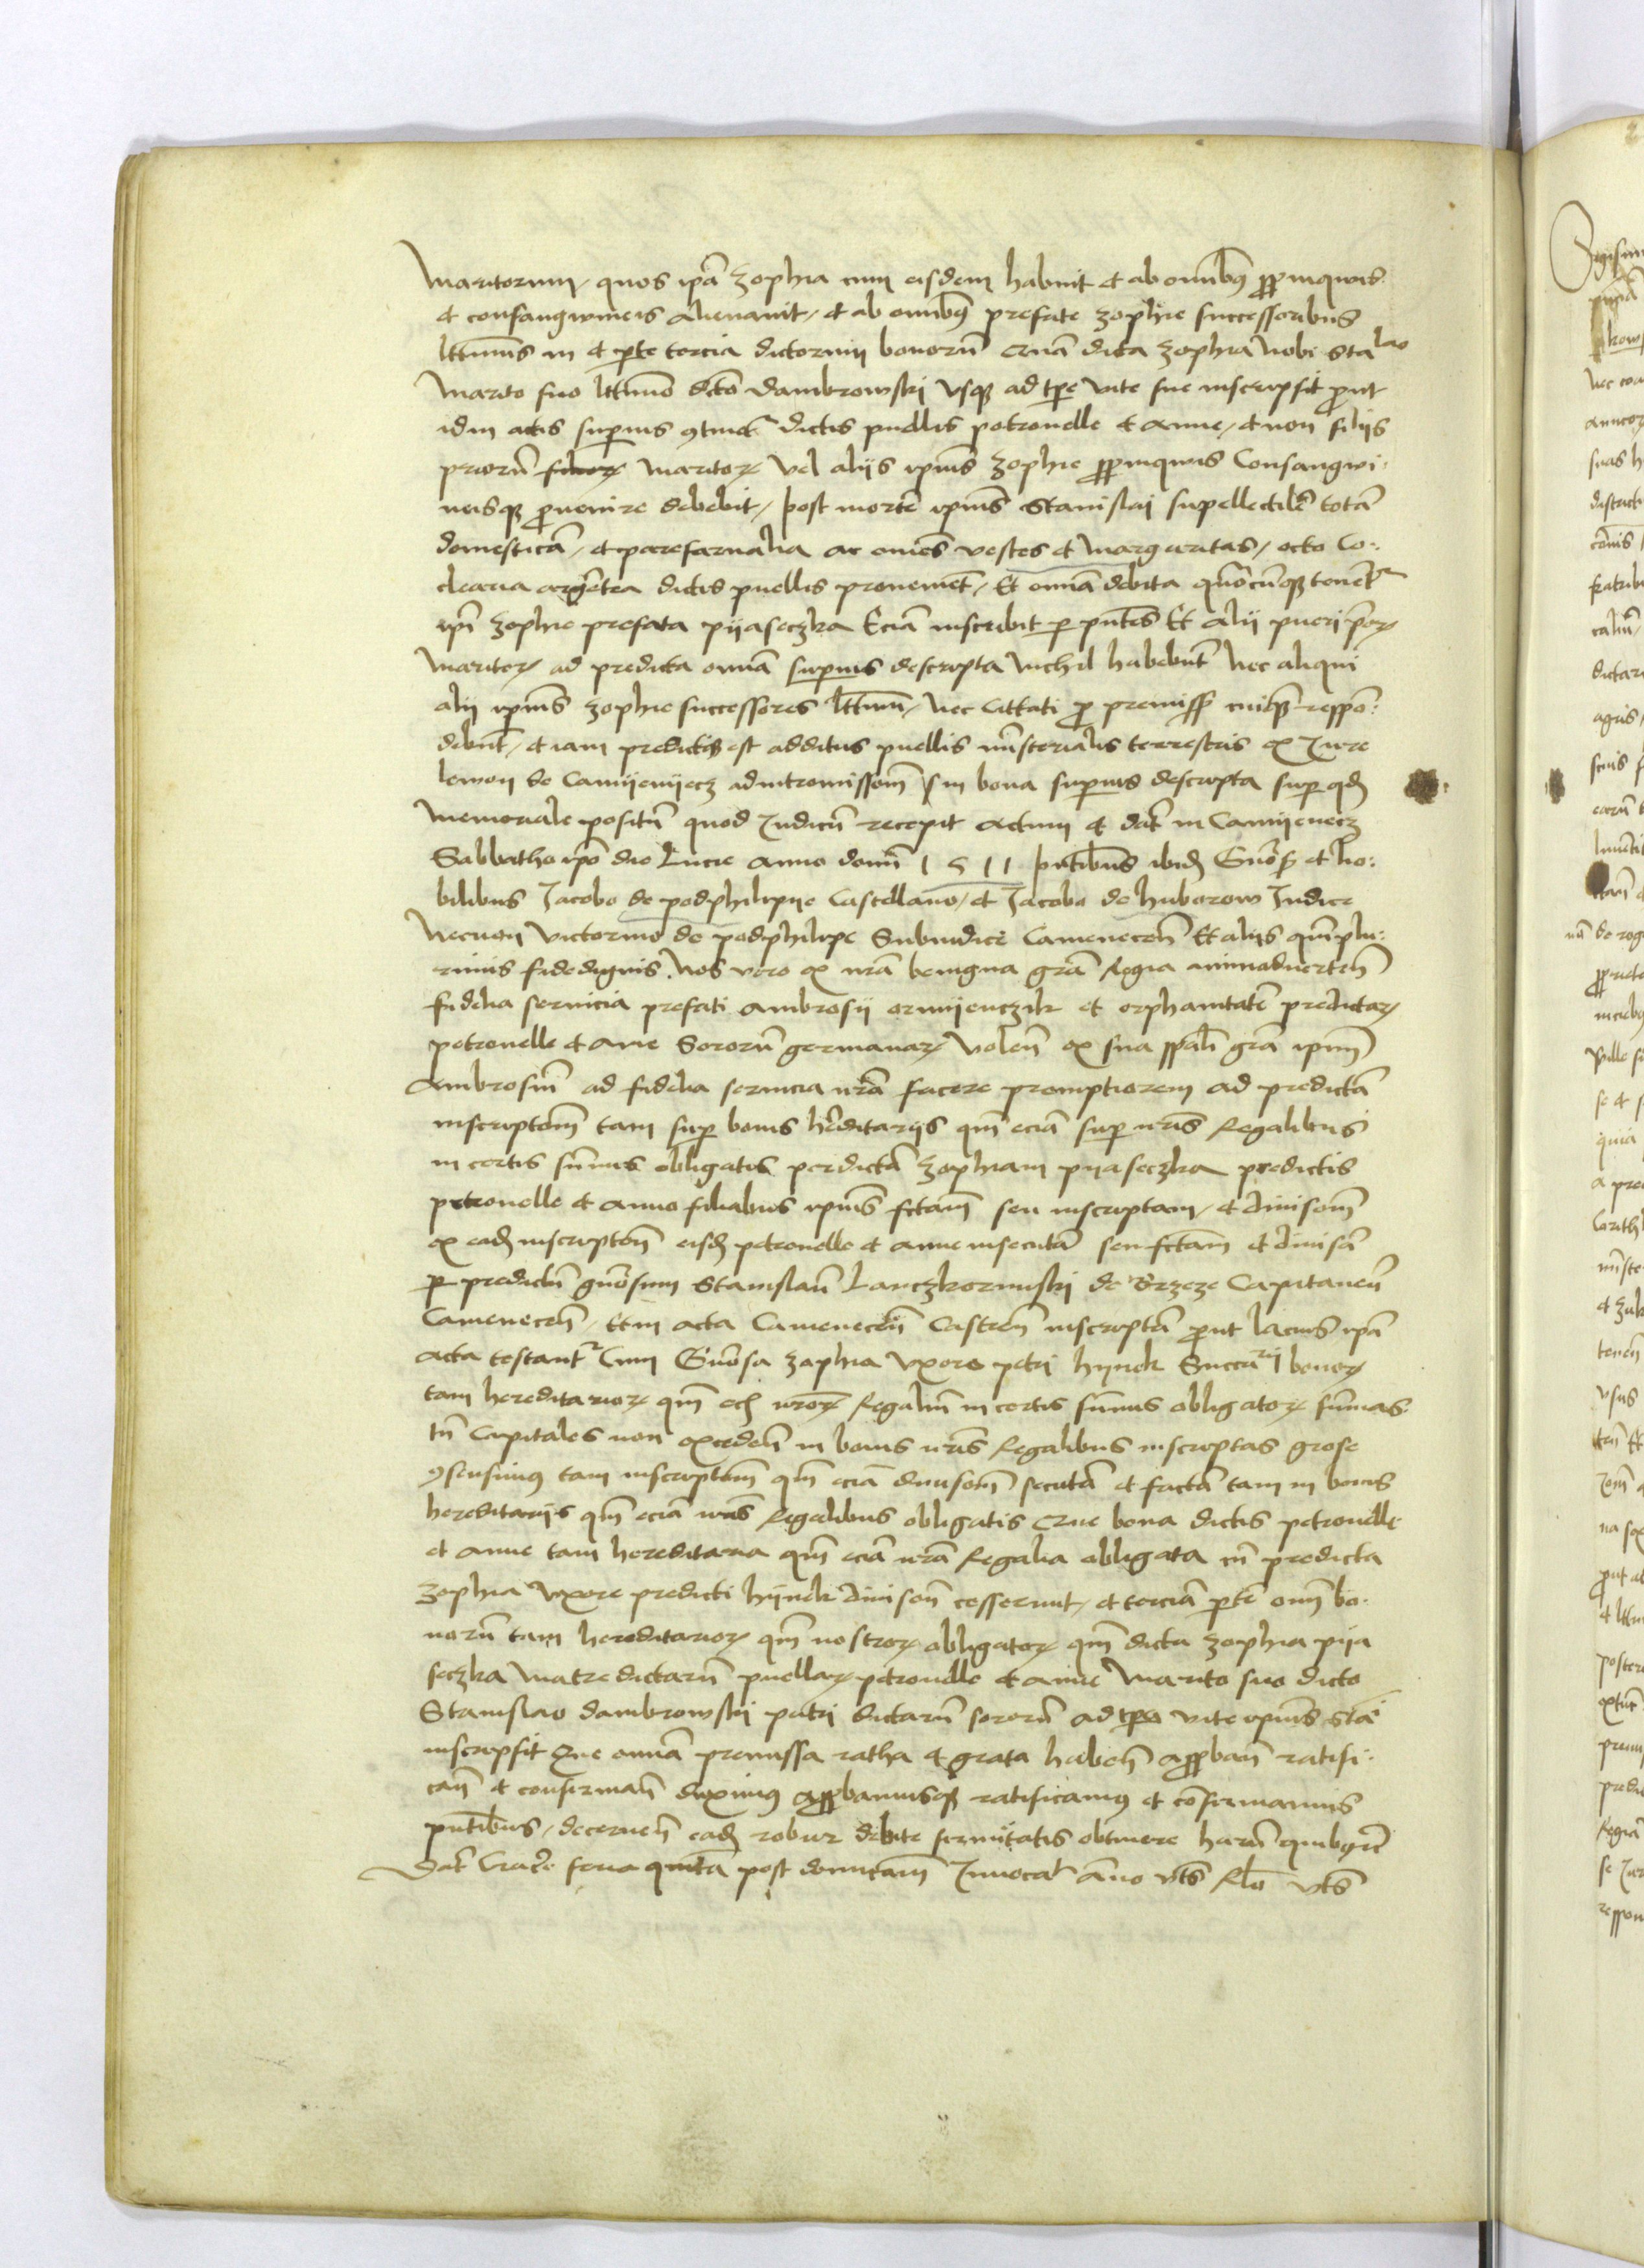 Maritorum, quos ipa Zophia cum eisdem habuit et ab omnibus propinquis
et consangwineis alienavit, et ab omnibus prefate Zophie successoribus
lttimis in et parte tercia dictorum bonorum quam dicta Zophia Nobi Stalao
Marito suo lttimo dicto Dambrowski usque ad tempore vite sue inscripsit prout
idem actis superius continetur dictis puellis petronelle et Anne, et non filiis
priorum maritorum vel aliis ipius Zophie propinquis Consangwi:
neisque provenire debebit, post mortem ipius Stanislai supellectilem totam
domesticam, et parefarnalia ac omnes vestes et margaritas, octo Co:
clearia argentea dictis puellis provenient, Et omnia debita tenentur
ipi Zophie prefata pijaseczka Eciam inscribit per pntes Et alii pueri priorum
Maritorum ad predicta omnia superius descripta nichil habebunt Nec aliqui
alii ipius Zophie successores lttimi, Nec Cittati pro premissis respon:
debunt, et iam predictis est additus puellis ministerialis terrestris ex Jure
lemon de Camijenijecz ad intromissionem in bona superius descripta super quod
Memoriale positum quod Judicium recepit Actum et datum in Camijenecz
Sabbatho ipo die Lucie Anno domini 1511 pntibus ibidem Generosis et No:
bilibus Jacobo de podphilipije Castellano, et Jacobo de huborow Judice
Necnon Victorino de podphilipe Subiudice Camenecen Et aliis quamplu:
rimis fidedignis. Nos vero ex nra benigna gra Regia animadverten
fidelia servicia prefati Ambrosij ormijenczik et orphanitatem predictarum
petronelle et Ane Sororum germanarum Volen ex sua spali gra ipum
Ambrosium ad fidelia servicia nra facere promptiorem ad predictam
inscriptionem tam super bonis hereditarijs quam eciam super nris Regalibus
in certis summis obligatis per dictam Zophiam pijaseczka predictis
petronelle et Anne filiabus ipius factam seu inscriptam, et divisionem
ex eadem inscriptione eisdem petronelle et Anne insecutam seu factam et divisam
per predictum generosum Stanislaum Lanczkorunski de Brzeze Capitaneum
Camenecen, Et in acta Camenecen Castren inscriptam prout lacius ipa
acta testantur Cum Generosa Zophia Uxore petri hijnek Succarij bonorum
tam hereditariorum quam eciam nrorum Regalium in certis summis obligatorum summas
tn Capitales non exceden in bonis nris Regalibus inscriptas grose
consensimus tam inscriptionem quam eciam divisionem secutam et factam tam in bonis
hereditarijs quam eciam nris Regalibus obligatis Que bona dictis petronelle
et Anne tam hereditaria quam eciam nra Regalia obligata cum predicta
Zophia Uxore predicti hijnek divisione cesserunt, et terciam partem omnium bo:
norum tam hereditariorum quam nostrorum obligatorum quam dicta Zophia pija
seczka Matre dictarum puellarum petronelle et Anne Marito suo dicto
Stanislao Dambrowski patri dictarum sororum ad tempora vite ipius Slai
inscripsit Que omnia premissa ratha et grata haben approban ratifi:
can et confirman duximus approbamusque ratificamus et confirmamus
pntibus, decernen eadem robur debite firmitatis obtinere harum quibus
Dat Crac. feria quinta post dominicam Invocavit Anno vts Rlo vts